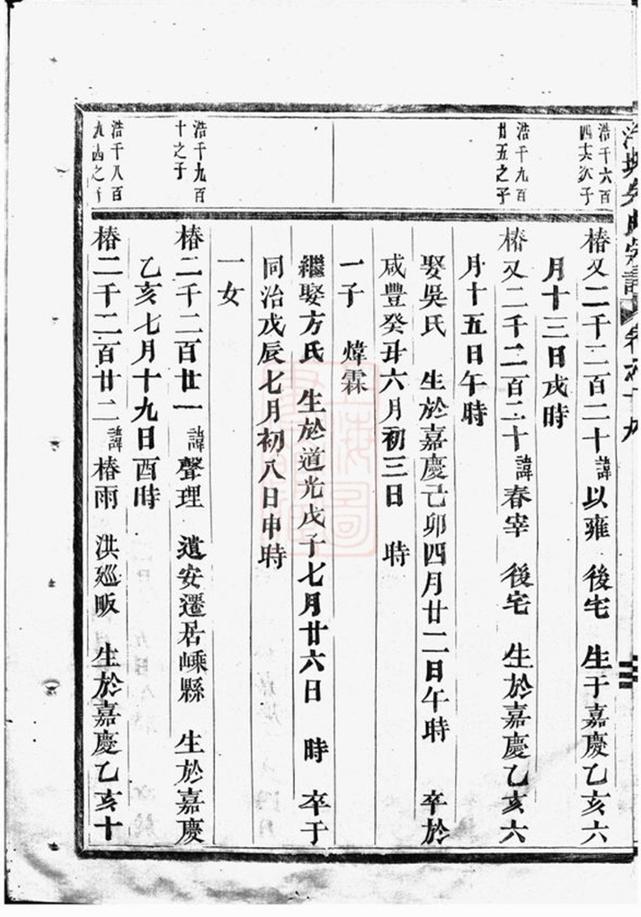 吳氏宗譜 卷之十九
浩千六百
四十六次子
椿又二千二百二十 諱以雍 後宅 生于嘉慶乙亥六
月十三日戌時
浩千九百
廿五之子
椿又二千二百二十 諱春宰 後宅 生於嘉慶乙亥六
月十五日午時
娶吳氏 生於嘉慶己卯四月廿二日午時 卒於
咸豐癸丑六月初三日 時
一子 煒霖
繼娶方氏 生於道光戊子七月廿六日 時 卒于
同治戊辰七月初八日申時
一女
浩千九百
十之子
椿二千二百廿一 諱聲理 遺安遷居嵊縣 生於嘉慶
乙亥七月十九日酉時
浩千八百
九十四之子
椿二千二百廿二 諱椿雨 洪廵畈 生於嘉慶乙亥十